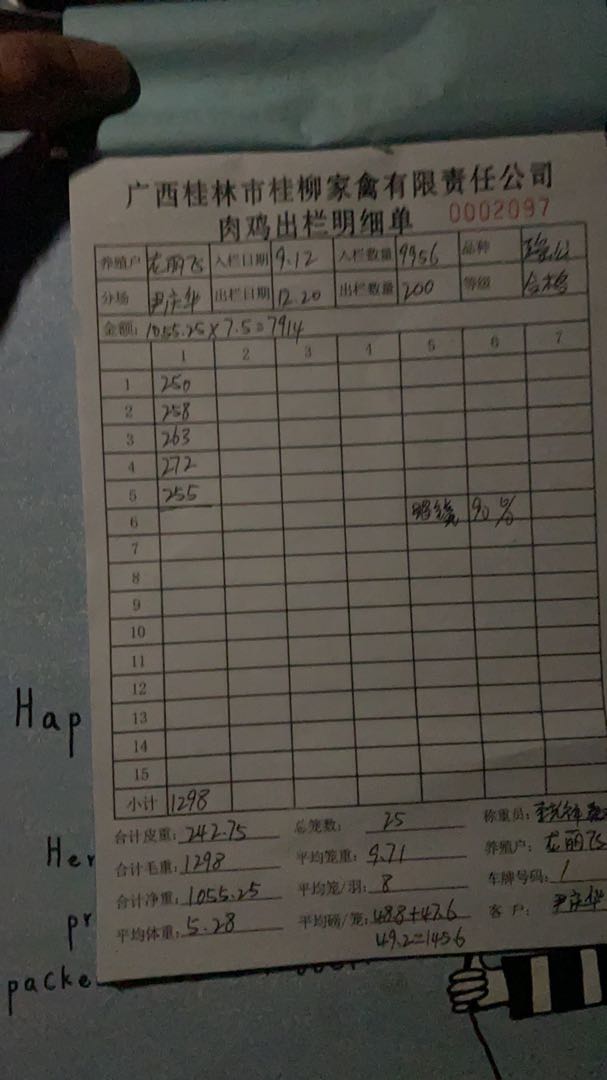 广西桂林市桂柳家禽有限责任公司
肉鸡出栏明细单 0002097
养殖户 龙丽飞 入栏日期 9.12 入栏数量 9956 品种
分场 尹庆华 出栏日期 12.20 出栏数量 200 等级 合格
金额: 1055.25×7.5=7914
1 2 3 4 5 6 7
1 250
2 258
3 263
4 272
5 255
6 90%
7
8
9
10
11
12
13
14
15
小计 1298
合计皮重: 242.75 总笼数: 25 称重员:
合计毛重: 1298 平均笼重: 9.71 养殖户: 龙丽飞
合计净重: 1055.25 平均笼/羽: 8 车牌号码: 1
平均体重: 5.28 平均磅/笼: 48.8+47.6 客户: 尹庆华
49.2=145.6
Hap
Her
pr
packe